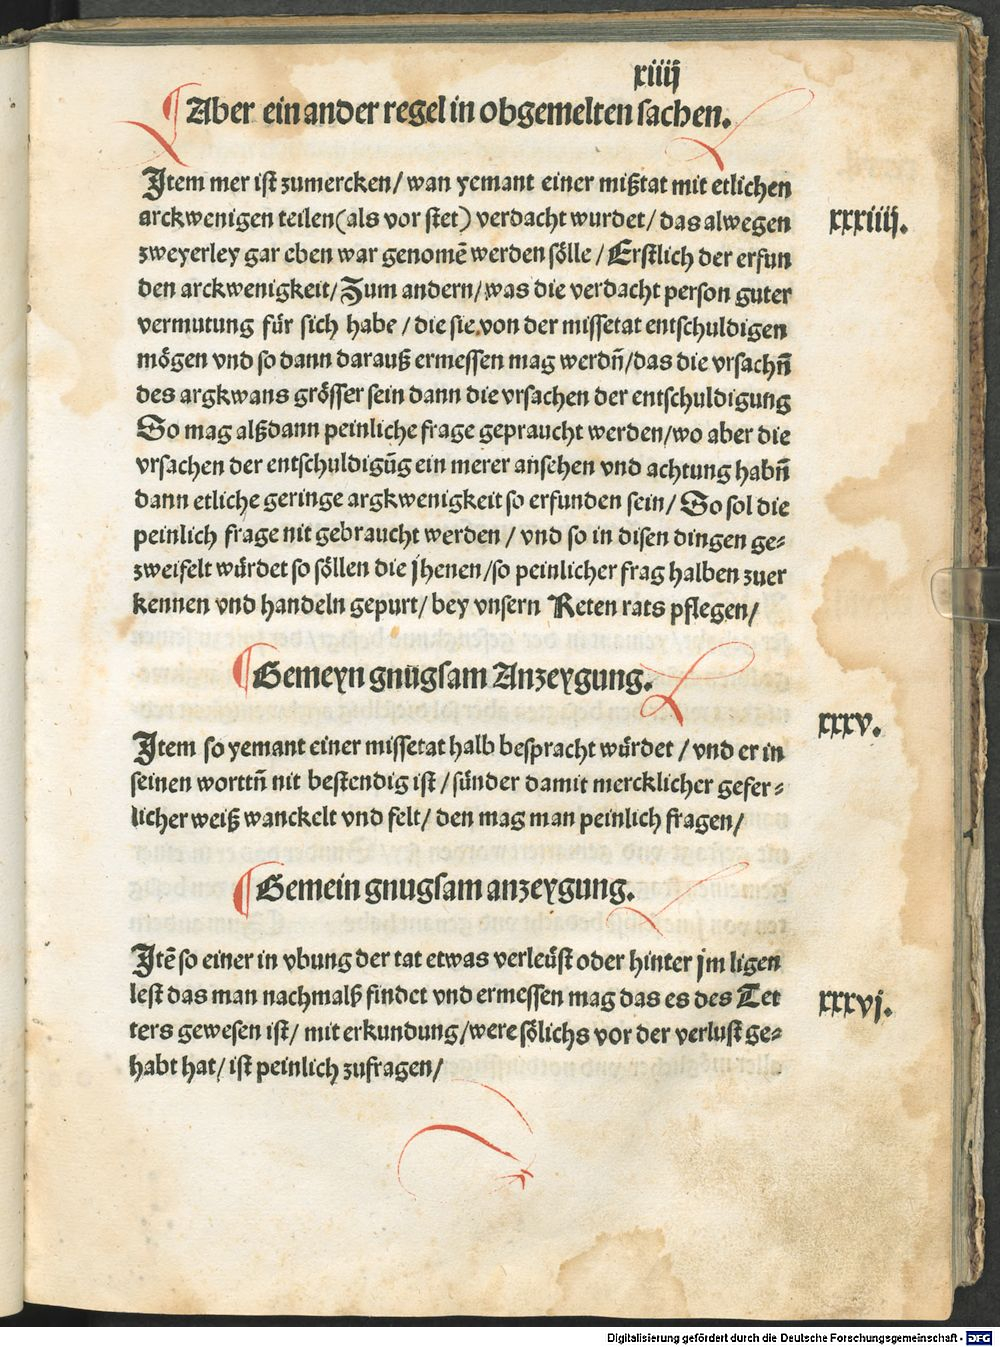 xiiij
¶ Aber ein ander regel in obgemelten sachen.
Jtem mer ist zumercken/ wan yemant einer mißtat mit etlichen
arckwenigen teilen(als vor stet) verdacht wurdet/ das alwegen
xxxiiij.
zweyerley gar eben war genomē werden sölle/ Erstlich der erfun
den arckwenigkeit/ Zum andern/ was die verdacht person guter
vermutung für sich habe/ die sie von der missetat entschuldigen
mögen vnd so dann darauß ermessen mag werdn̄/das die vrsachn̄
des argkwans grösser sein dann die vrsachen der entschuldigung
So mag alßdann peinliche frage gepraucht werden/wo aber die
vrsachen der entschuldigūg ein merer ansehen vnd achtung habn̄
dann etliche geringe argkwenigkeit so erfunden sein/ So sol die
peinlich frage nit gebraucht werden/ vnd so in disen dingen ge⸗
zweifelt würdet so söllen die jhenen/so peinlicher frag halben zuer
kennen vnd handeln gepurt/ bey vnsern Reten rats pflegen/
¶ Gemeyn gnugsam Anzeygung.
xxxv.
Jtem so yemant einer missetat halb bespracht würdet/ vnd er in
seinen worttn̄ nit bestendig ist/ sünder damit mercklicher gefer⸗
licher weiß wanckelt vnd felt/ den mag man peinlich fragen/
¶ Gemein gnugsam anzeygung.
Jtē so einer in vbung der tat etwas verleüst oder hinter jm ligen
lest das man nachmalß findet vnd ermessen mag das es des Tet
xxxvj.
ters gewesen ist/ mit erkundung/were sölichs vor der verlust ge⸗
habt hat/ ist peinlich zufragen/
Digitalisierung gefördert durch die Deutsche Forschungsgemeinschaft - DFG